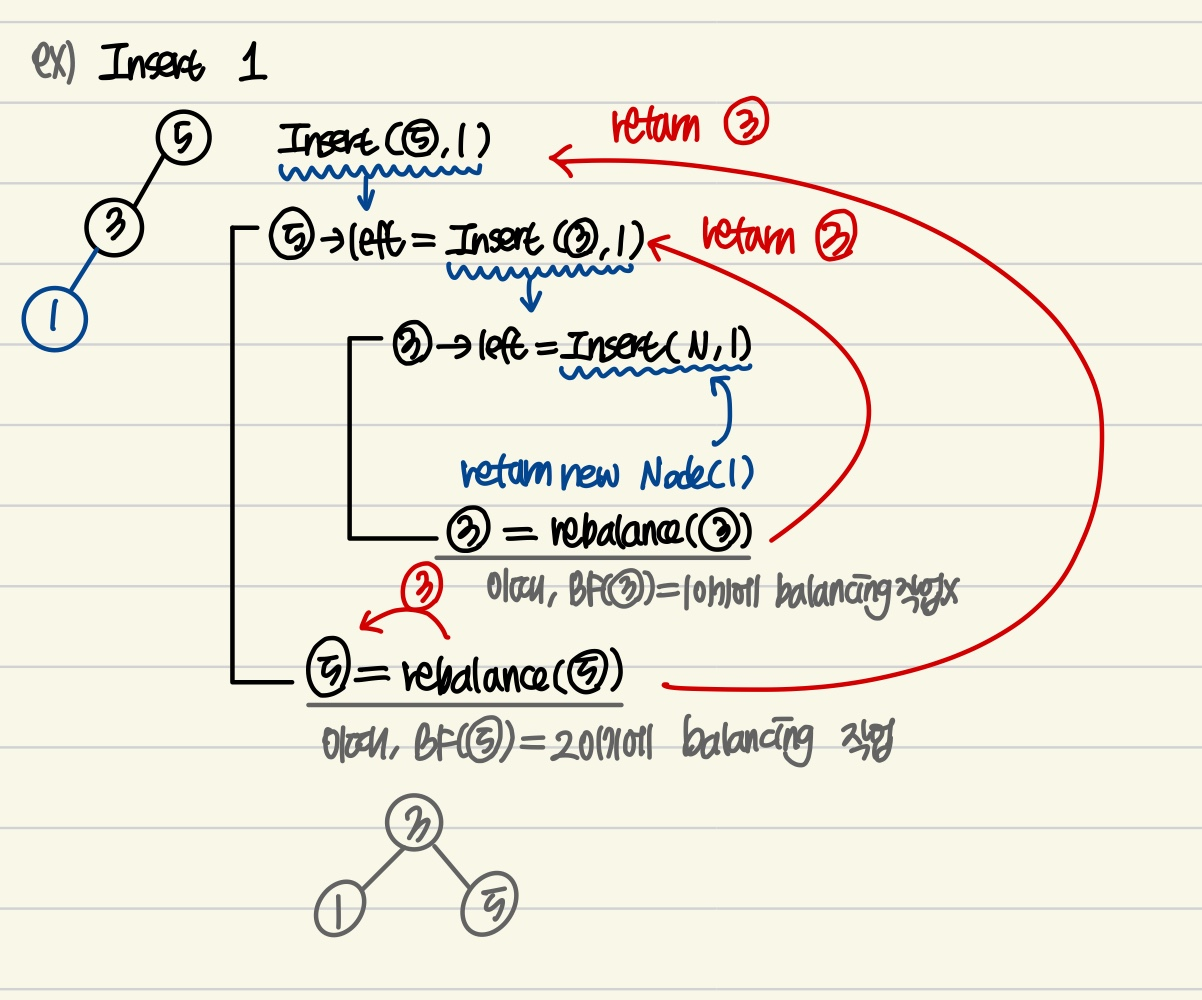 ex) Insert 1
5
Insert (5, 1)
return 3
3
5→left = Insert (3, 1)
return 3
1
3→left = Insert(N, 1)
return new Node(1)
3 = rebalance(3)
이때, BF(3)=1이기에 balancing 작업x
3
5 = rebalance(5)
이때, BF(5)=2이기에 balancing 작업
3
1 5